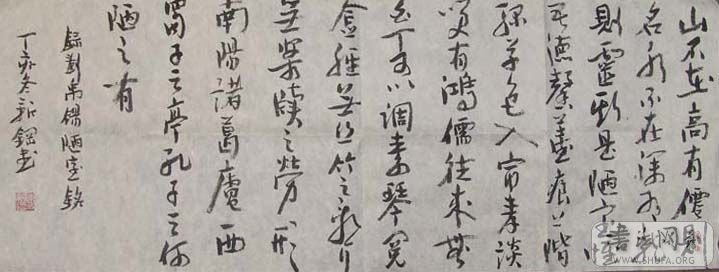 山不在高有僊則
名水不在深有
則靈斯是陋室
吾德馨苔痕上階
綠草色入帘青談
笑有鴻儒往來無
白丁可以調素琴閱
金經無絲竹之亂耳
無案牘之勞形
南陽諸葛廬西
蜀子云亭孔子云何
陋之有
錄劉禹錫陋室銘
丁亥冬新鋼書
書法网
WWW.SHUFA.ORG